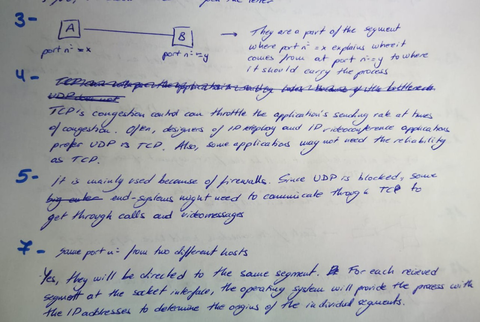 3-
A B → They are a part of the segment
port nº = x port nº = y where port nº = x explains where it
comes from at port nº = y to where
it should carry the process
4-
UDP does not
TCP is congestion control can throttle the application's sending rate at times
of congestion. Often, designers of IP telephony and IP videoconference applications
prefer UDP is TCP. Also, some applications may not need the reliability
as TCP.
5- It is mainly used because of firewalls. Since UDP is blocked, some
end-systems might need to communicate through TCP to
get through calls and videomessages
7- Same port nº from two different hosts
Yes, they will be directed to the same segment. For each recieved
segment at the socket interface, the operating system will provide the process with
the IP addresses to determine the orgins of the individual segments.